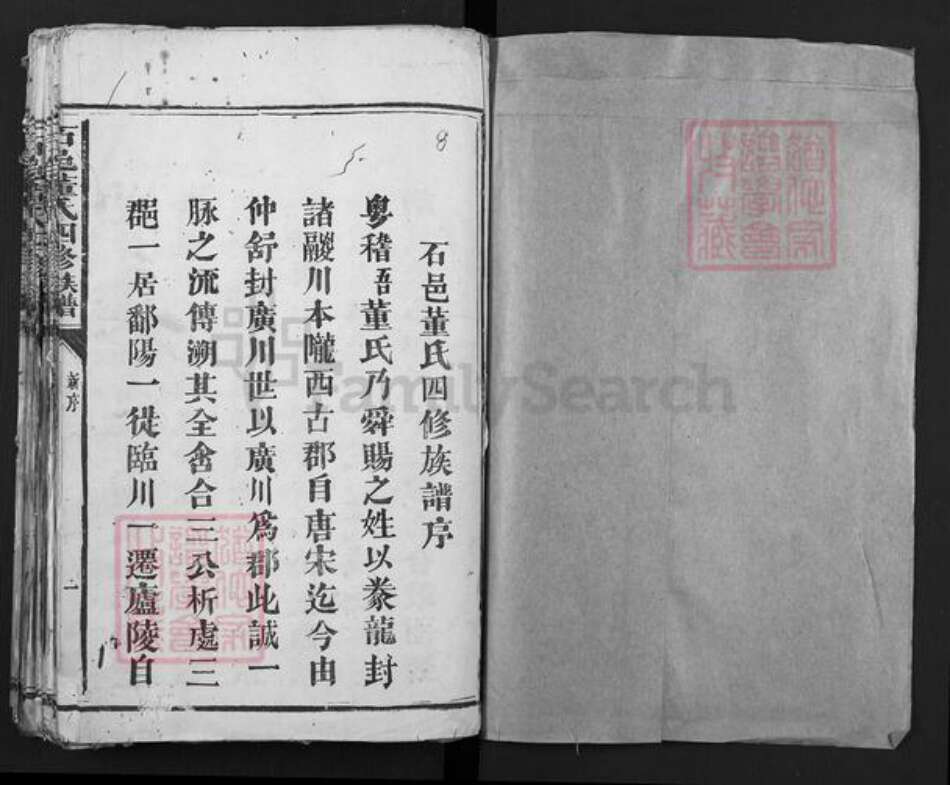 石邑董氏四修族譜序
粵稽吾董氏乃舜賜之姓以豢龍封
諸鬷川本隴西古郡自唐宋迄今由
仲舒封廣川世以廣川為郡此誠一
脉之流傳溯其全畬合三公析處三
郡一居鄱陽一徙臨川一遷廬陵自
石邑董氏四修族譜
新序
一
8
FamilySearch